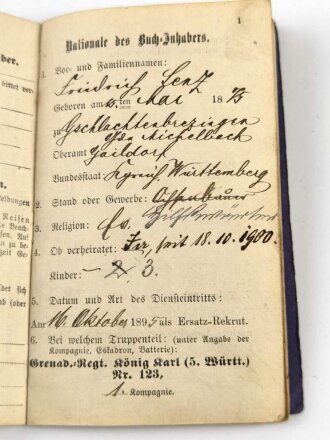 1
Nationale des Buch-Inhabers.
1. Vor- und Familiennamen:
Friedrich Lenz
Geboren am 5. ten Mai 1873
zu Gschlachtenbretzingen
Gde. Michelbach
Oberamt Gaildorf
Bundesstaat Kgreich Württemberg
2. Stand oder Gewerbe:
3. Religion: Ev.
4. Ob verheiratet: Ja, seit 18.10.1900.
Kinder: – 2 3.
5. Datum und Art des Diensteintritts:
Am 16. Oktober 1895 als Ersatz-Rekrut.
6. Bei welchem Truppenteil: (unter Angabe der
Kompagnie, Eskadron, Batterie):
Grenad.-Regt. König Karl (5. Württ.)
Nr. 123,
1. Kompagnie.